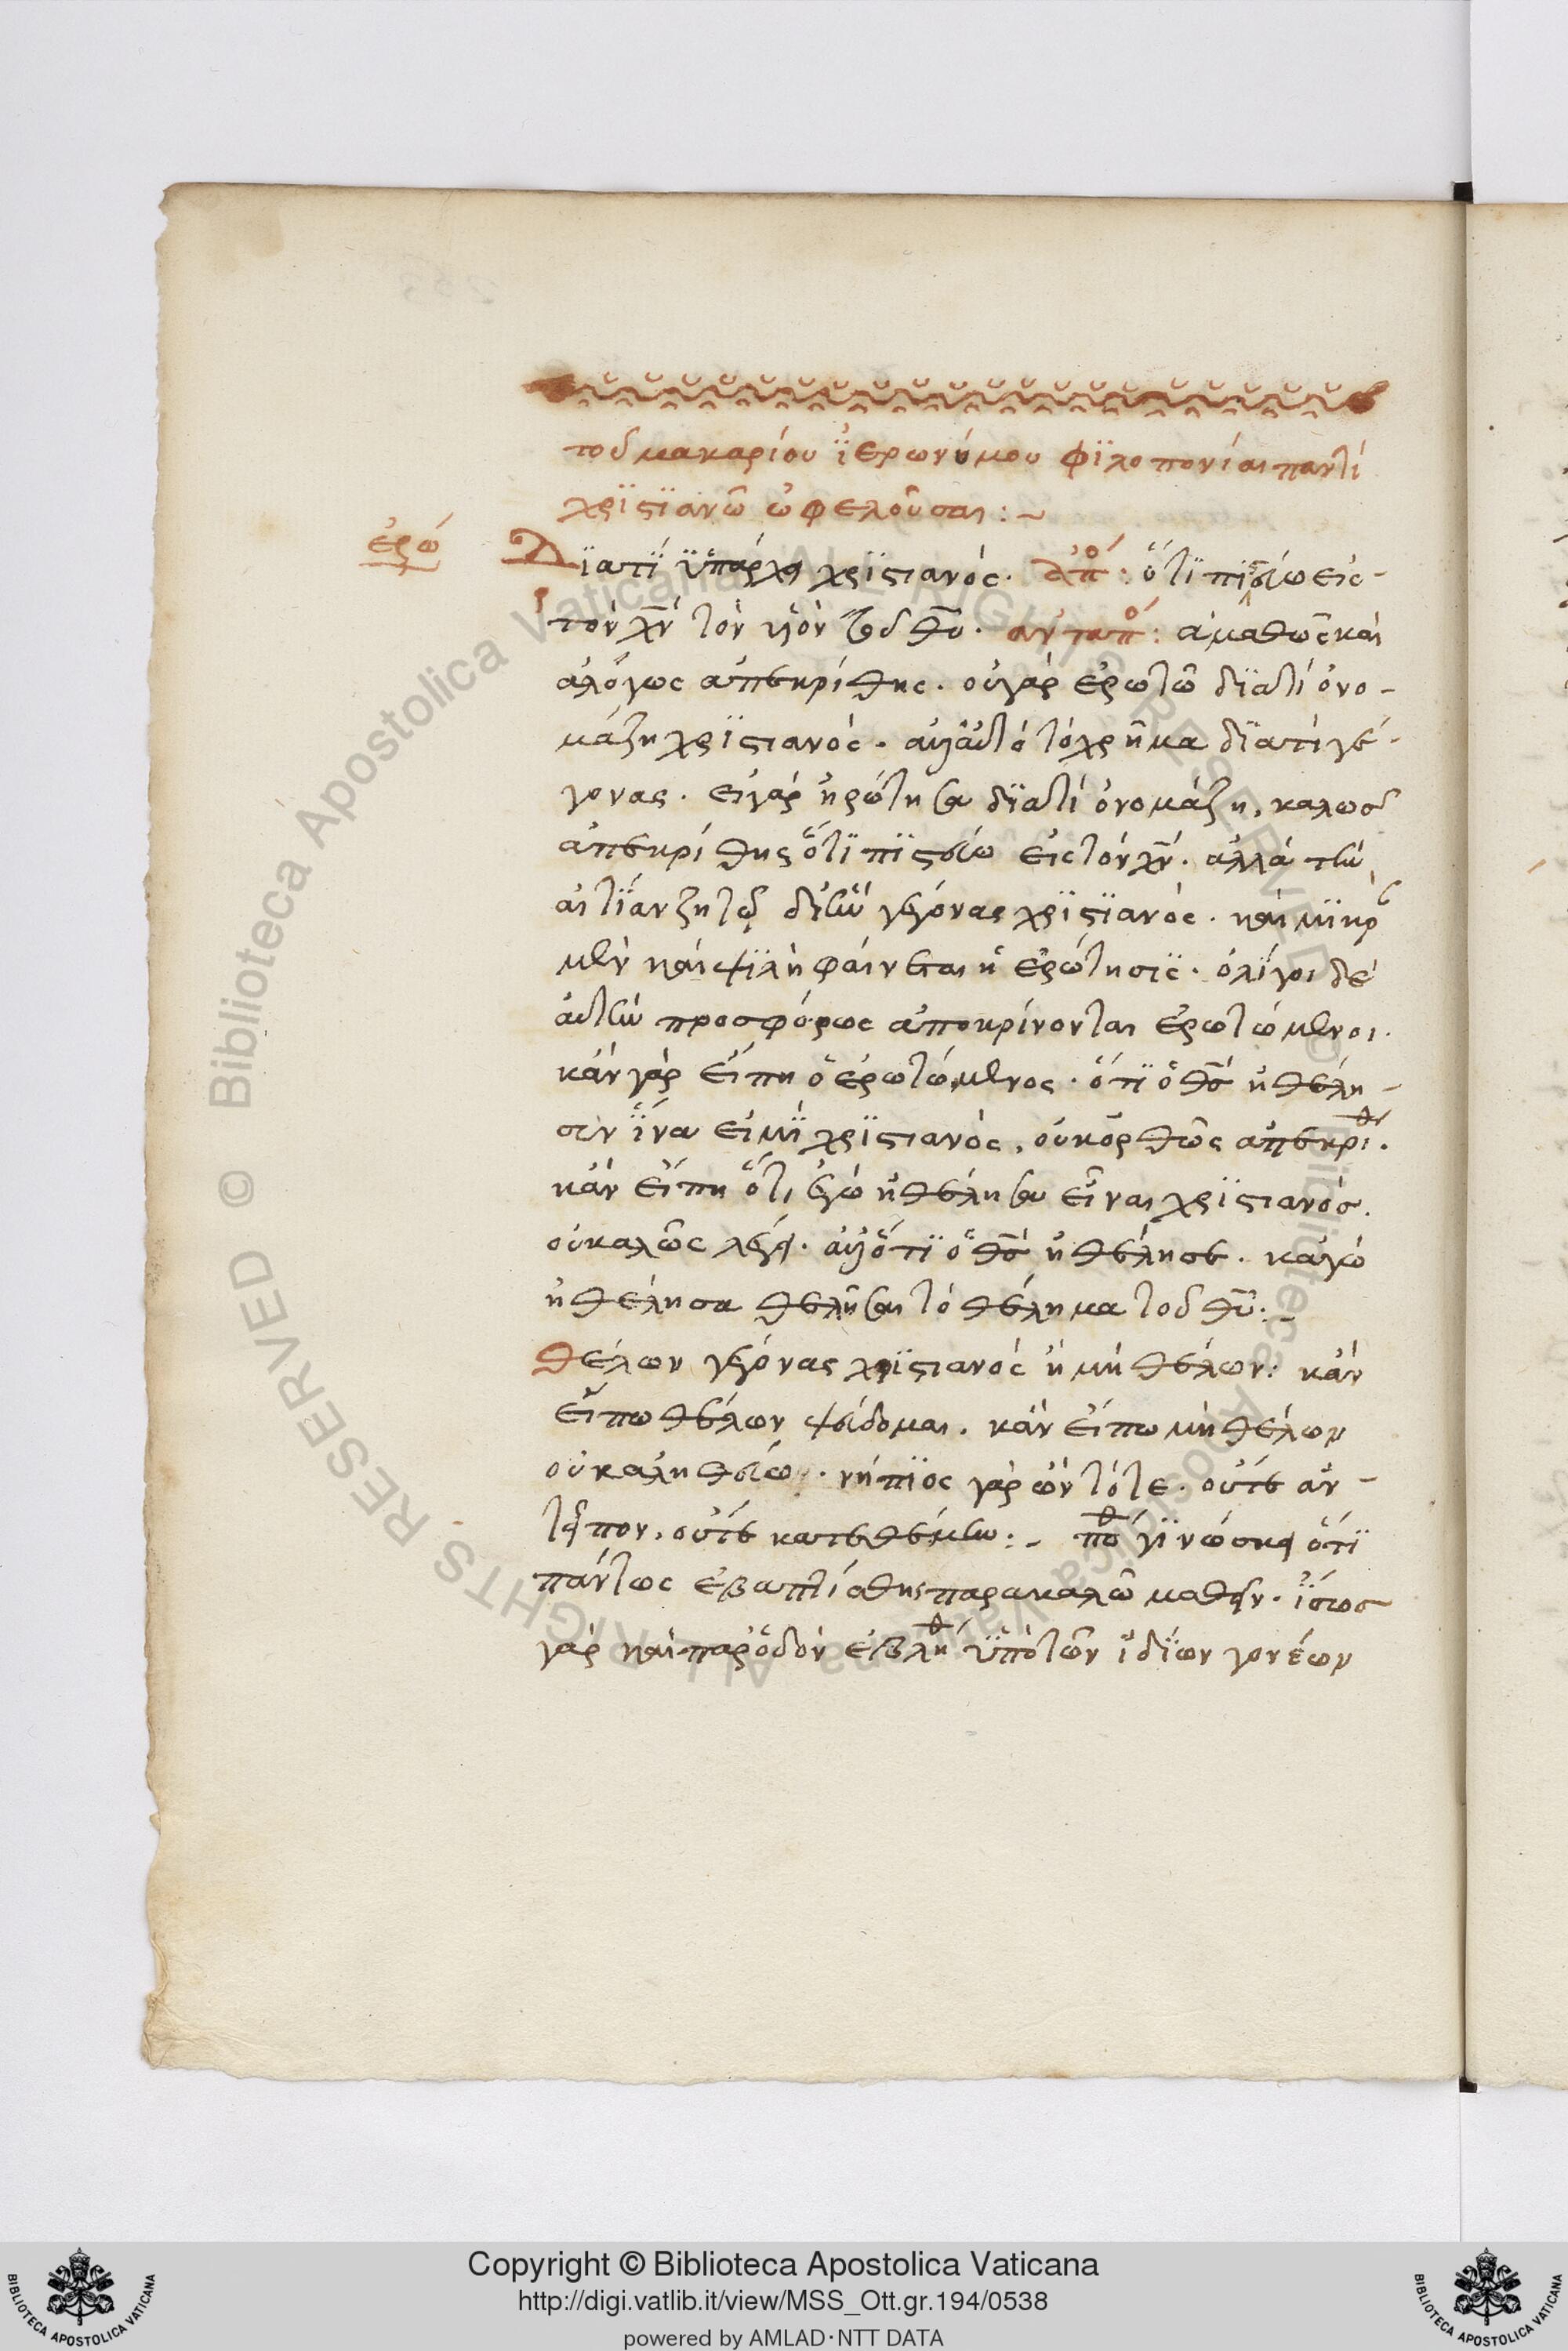 τοῦ μακαρίου ϊερωνύμου φϊλοπονίαι παντὶ
χρϊστϊανῶ ὠφελοῦσαι :~
ἐρώ
Δϊατϊ ὑπάρχει χρϊστιανός. ἀπό: ὅτϊ πϊστεύω εἰς-
τὸν χν τὸν υἱὸν τοῦ θυ. ανταπό: ἀμαθῶς καὶ
ἀλόγως ἀπεκρίθης. οὐ γὰρ ἐρωτῶ δϊατί ὀνο-
μάζη χρϊστιανός. ἀλλ' αὐτὸ τὸ χρῆμα δϊατί γέ-
γονας. εἰ γὰρ ἠρώτησα δϊατί ὀνομάζη, καλῶς
ἀπεκρίθης ὅτϊ πϊστεύω εἰς τὸν χν. ἀλλὰ τὴν
αἰτίαν ζητῶ δι' ἣν γέγονας χρϊστϊανός. καὶ μϊκρὰ
μὲν καὶ ψϊλὴ φαίνεται ἡ ἐρώτησϊς. ὀλίγοι δὲ
αὐτὴν προσφόρως ἀποκρίνονται ἐρωτώμενοι.
κἂν γὰρ εἴπη ὁ ἐρωτώμενος. ὅτϊ ὁ θς ἠθέλη-
σεν ἵνα εἰμϊ χρϊστιανός, οὐκ ὀρθῶς ἀπεκρίθ.
κἂν εἴπη ὅτι ἐγὼ ἠθέλησα εἶναι χρϊστιανός.
οὐ καλῶς λέγει. ἀλλ' ὅτϊ ὁ θς ἠθέλησε. καγὼ
ἠθέλησα θελῆσαι τὸ θέλημα τοῦ θυ:-
θέλων γέγονας χρϊστιανός ἢ μὴ θέλων: κἂν
εἴπω θέλων ψεύδομαι. κἂν εἴπω μὴ θέλων
οὐκ ἀληθεύω. νήπϊος γὰρ ὢν τότε. οὔτε ἀν-
τεῖπον, οὔτε κατεθέμην:- πόθ γϊνώσκει ὅτϊ
πάντως ἐβαπτίσθης παρακαλῶ μαθεῖν. ἴσως
γὰρ καὶ παρ' ὁδὸν ἐβλήθ ὑπὸ τῶν ἰδίων γονέων
Copyright © Biblioteca Apostolica Vaticana
http://digi.vatlib.it/view/MSS_Ott.gr.194/0538
powered by AMLAD·NTT DATA